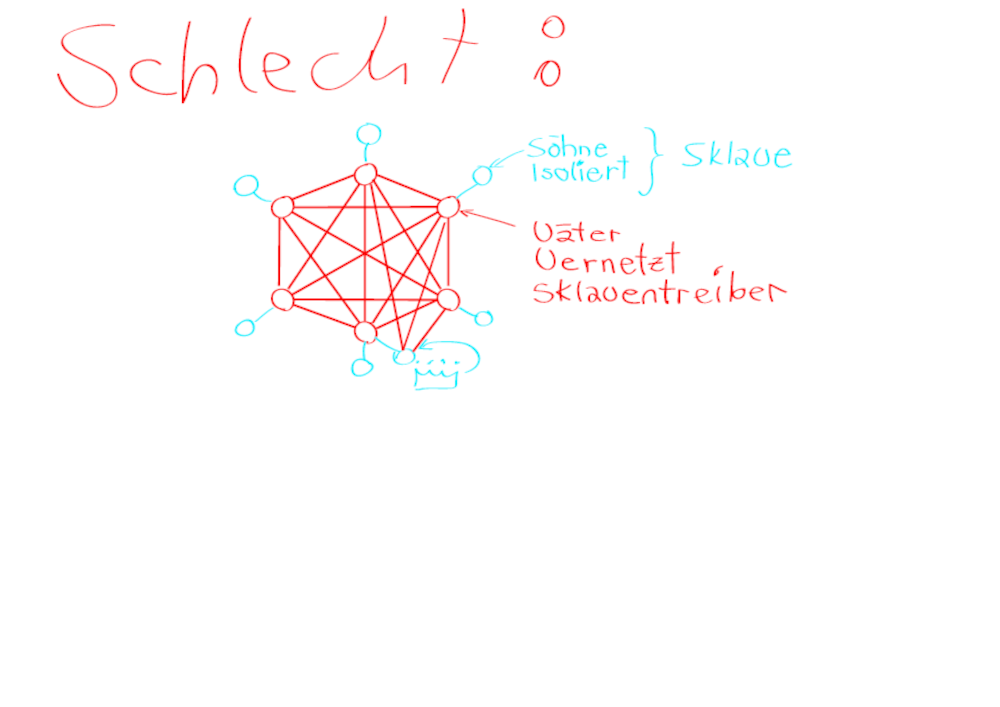 Schlecht :
Söhne
Isoliert } Sklave
Väter
Vernetzt
Sklaventreiber